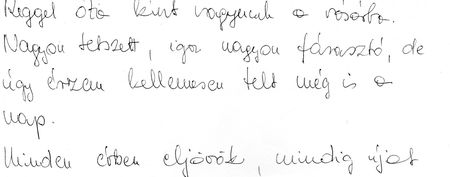 Reggel óta kint vagyunk a vásárba.
Nagyon tetszett, igaz nagyon fárasztó, de
úgy érzem kellemesen telt még is a
nap.
Minden évben eljövök, mindig újat